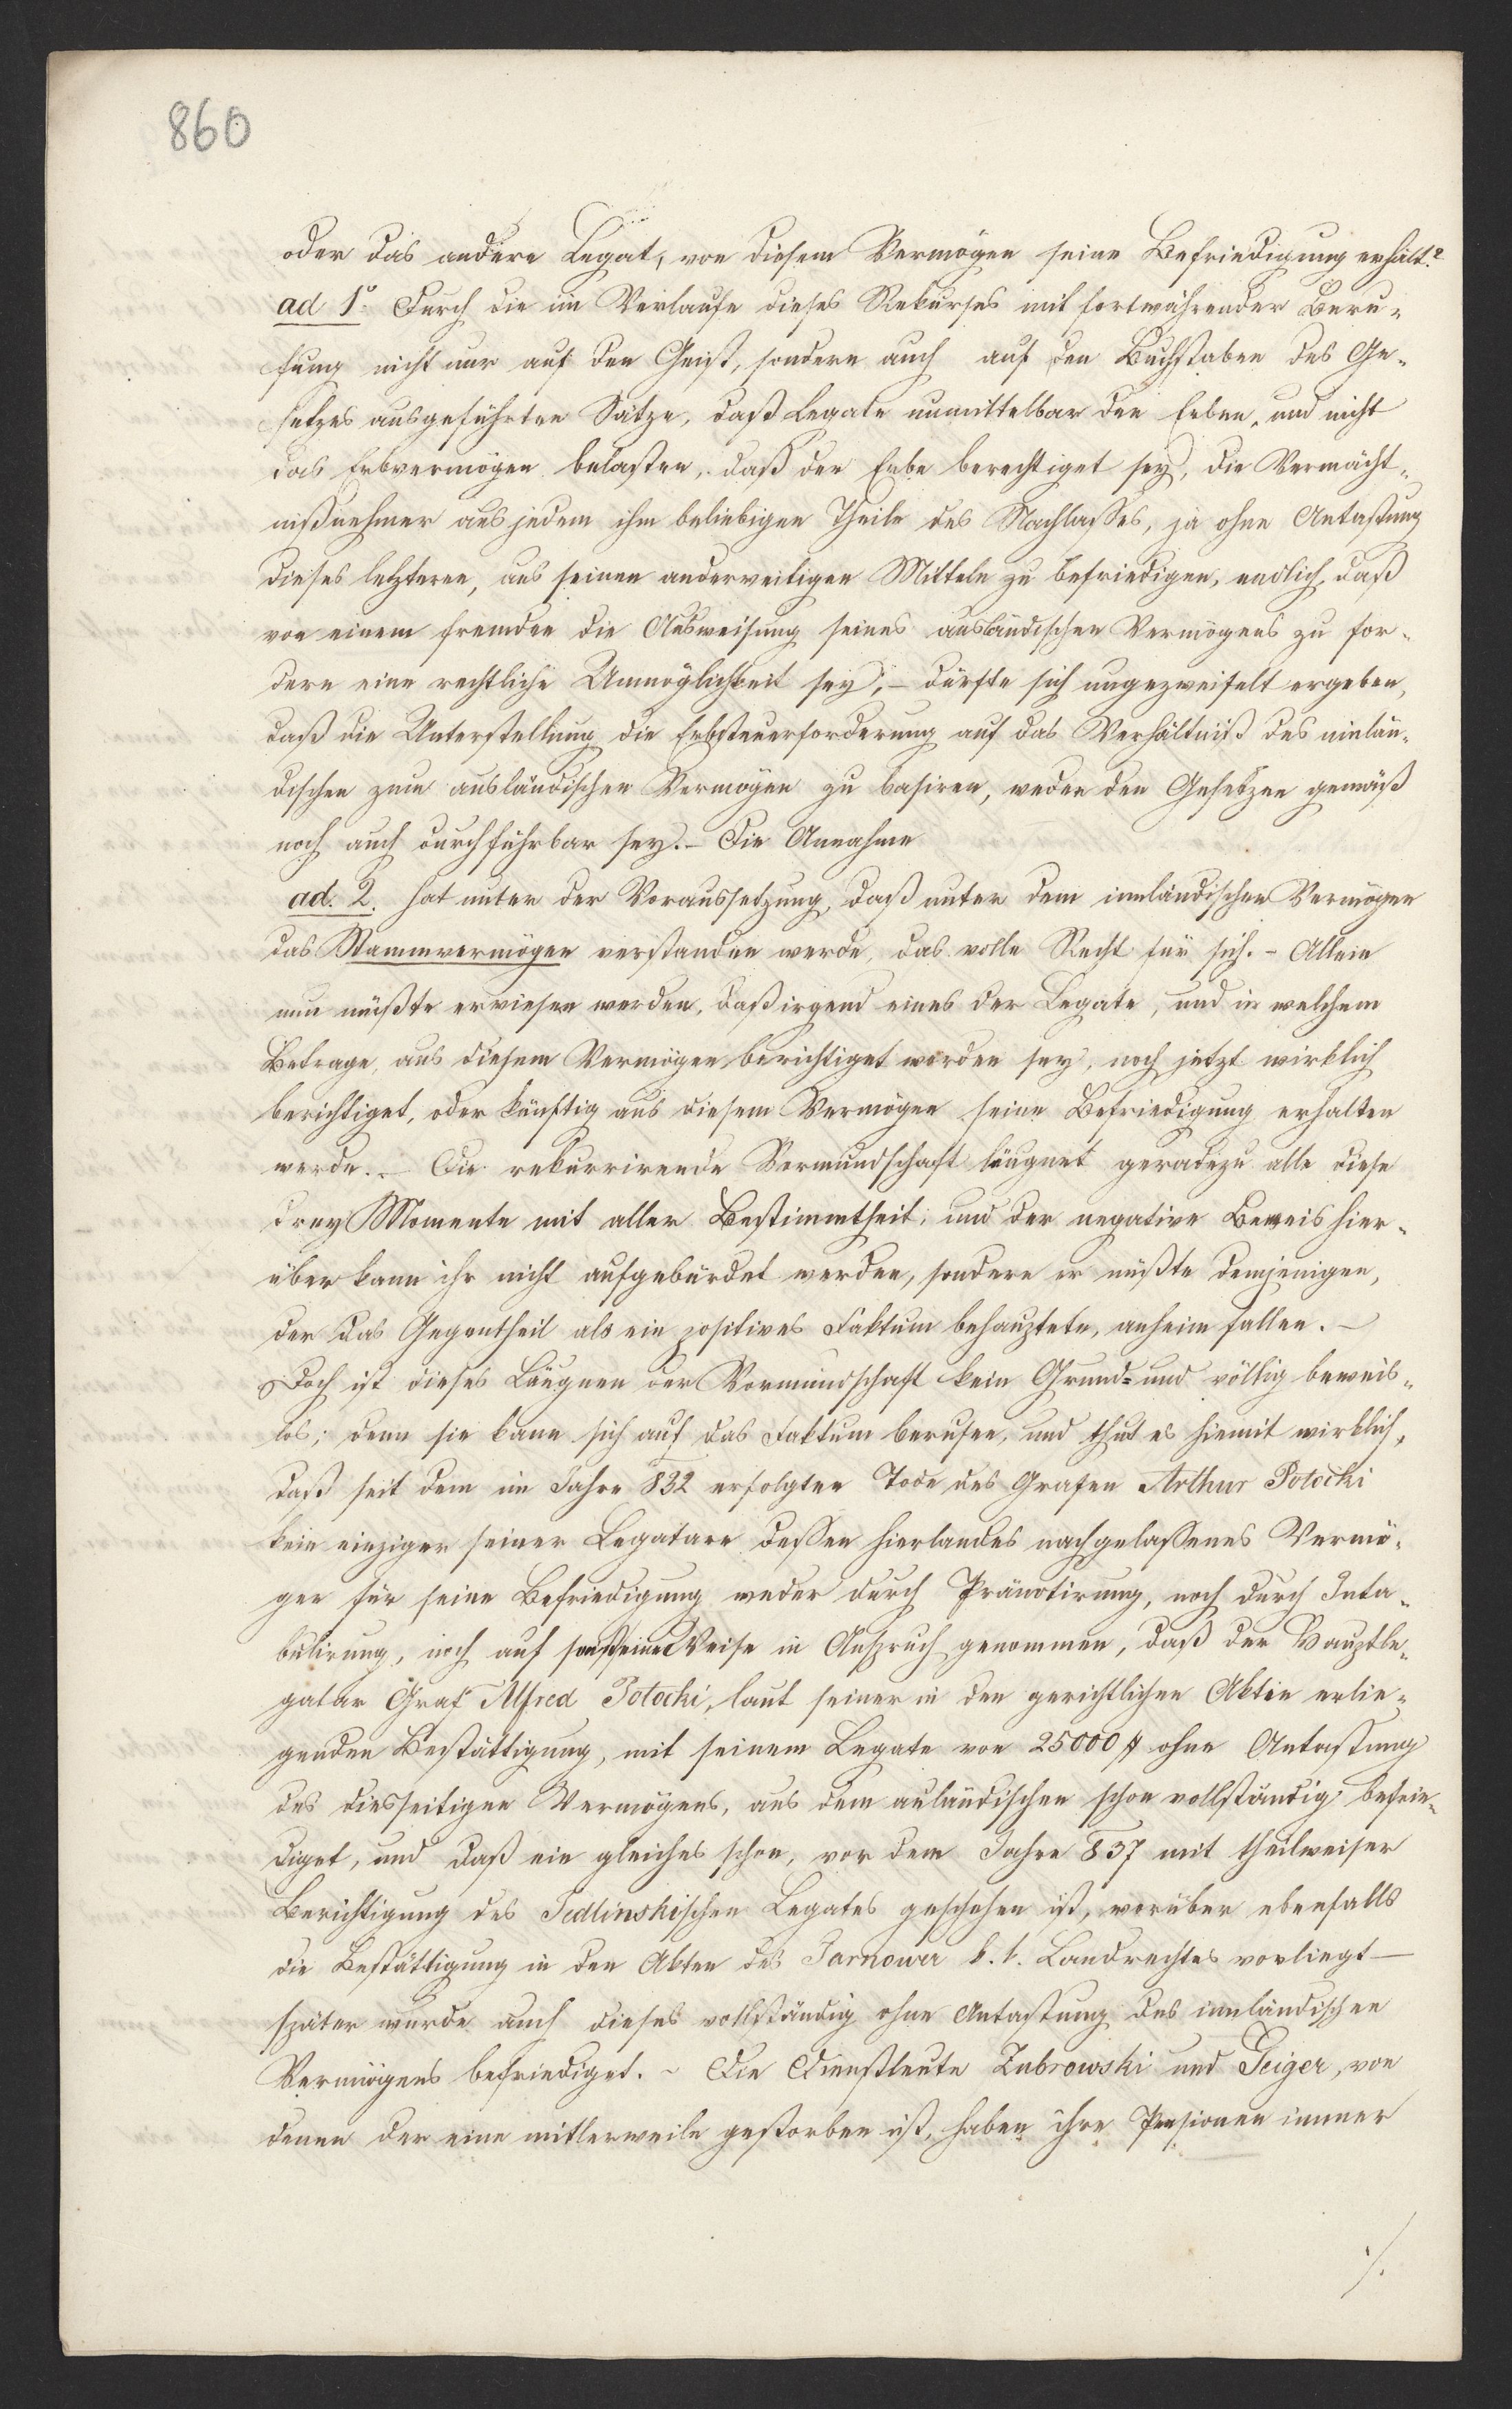 860
oder das andere Legat, von diesem Vermögen seine Befriedigung erhält?
ad 1º. Durch die im Verlaufe dieses Rekurses mit fortwährender Beru-
fung nicht nur auf den Geist, sondern auch auf den Buchstaben des Ge-
setzes ausgeführten Sätze, daß Legate unmittelbar den Erben, und nicht
das Erbvermögen belasten, daß der Erbe berechtiget sey, die Vermächt-
nißnehmer aus jedem ihm beliebigen Theile des Nachlaßes, ja ohne Antastung
dieses letzteren, aus seinen anderweitigen Mitteln zu befriedigen, endlich, daß
von einem fremden die Ausweisung seines ausländischen Vermögens zu for-
dern eine rechtliche Unmöglichkeit sey, – dürfte sich ungezweifelt ergeben,
daß die Unterstellung die Erbsteuerforderung auf das Verhältniß des einlän-
dischen zum ausländischen Vermögen zu basiren, weder den Gesetzen gemäß
noch auch durchführbar sey. – Die Annahme
ad. 2. hat unter der Voraussetzung, daß unter dem innländischen Vermögen
das Stammvermögen verstanden werde, das volle Recht für sich. – Allein
nun müßte erwiesen werden, daß irgend eines der Legate, und in welchem
Betrage, aus diesem Vermögen berichtiget worden sey, noch jetzt wirklich
berichtiget, oder künftig aus diesem Vermögen seine Befriedigung erhalten
werde. – Die rekurrirende Vormundschaft läugnet geradezu alle diese
drey Momente mit aller Bestimmtheit, und der negative Beweis hier-
über kann ihr nicht aufgebürdet werden, sondern er müßte demjenigen,
der das Gegentheil als ein positives Faktum behauptete, anheim fallen. –
Doch ist dieses Läugnen der Vormundschaft kein Grund- und völlig beweis-
los; denn sie kann sich auf das Faktum berufen, und thut es hiemit wirklich,
daß seit dem im Jahre 832 erfolgten Tode des Grafen Arthur Potocki
kein einziger seiner Legatare dessen hierlandes nachgelaßenes Vermö-
gen für seine Befriedigung weder durch Pränotirung, noch durch Inta-
bulirung, noch auf sonst eine Weise in Anspruch genommen, daß der Hauptle-
gatar Graf Alfred Potocki, laut seiner in den gerichtlichen Akten erlie-
genden Bestättigung, mit seinem Legate von 25000 # ohne Antastung
des diesseitigen Vermögens, aus dem auländischen schon vollständig befrie-
diget, und daß ein gleiches schon, vor dem Jahre 837 mit theilweiser
Berichtigung des Jedlinskischen Legates geschehen ist, worüber ebenfalls
die Bestättigung in den Akten des Tarnower k. k. Landrechtes vorliegt –
später wurde auch dieses vollständig ohne Antastung des innländischen
Vermögens befriediget. – Die Dienstleute Zubrowski und Geiger, von
denen der eine mittlerweile gestorben ist, haben ihre Pensionen immer
./.